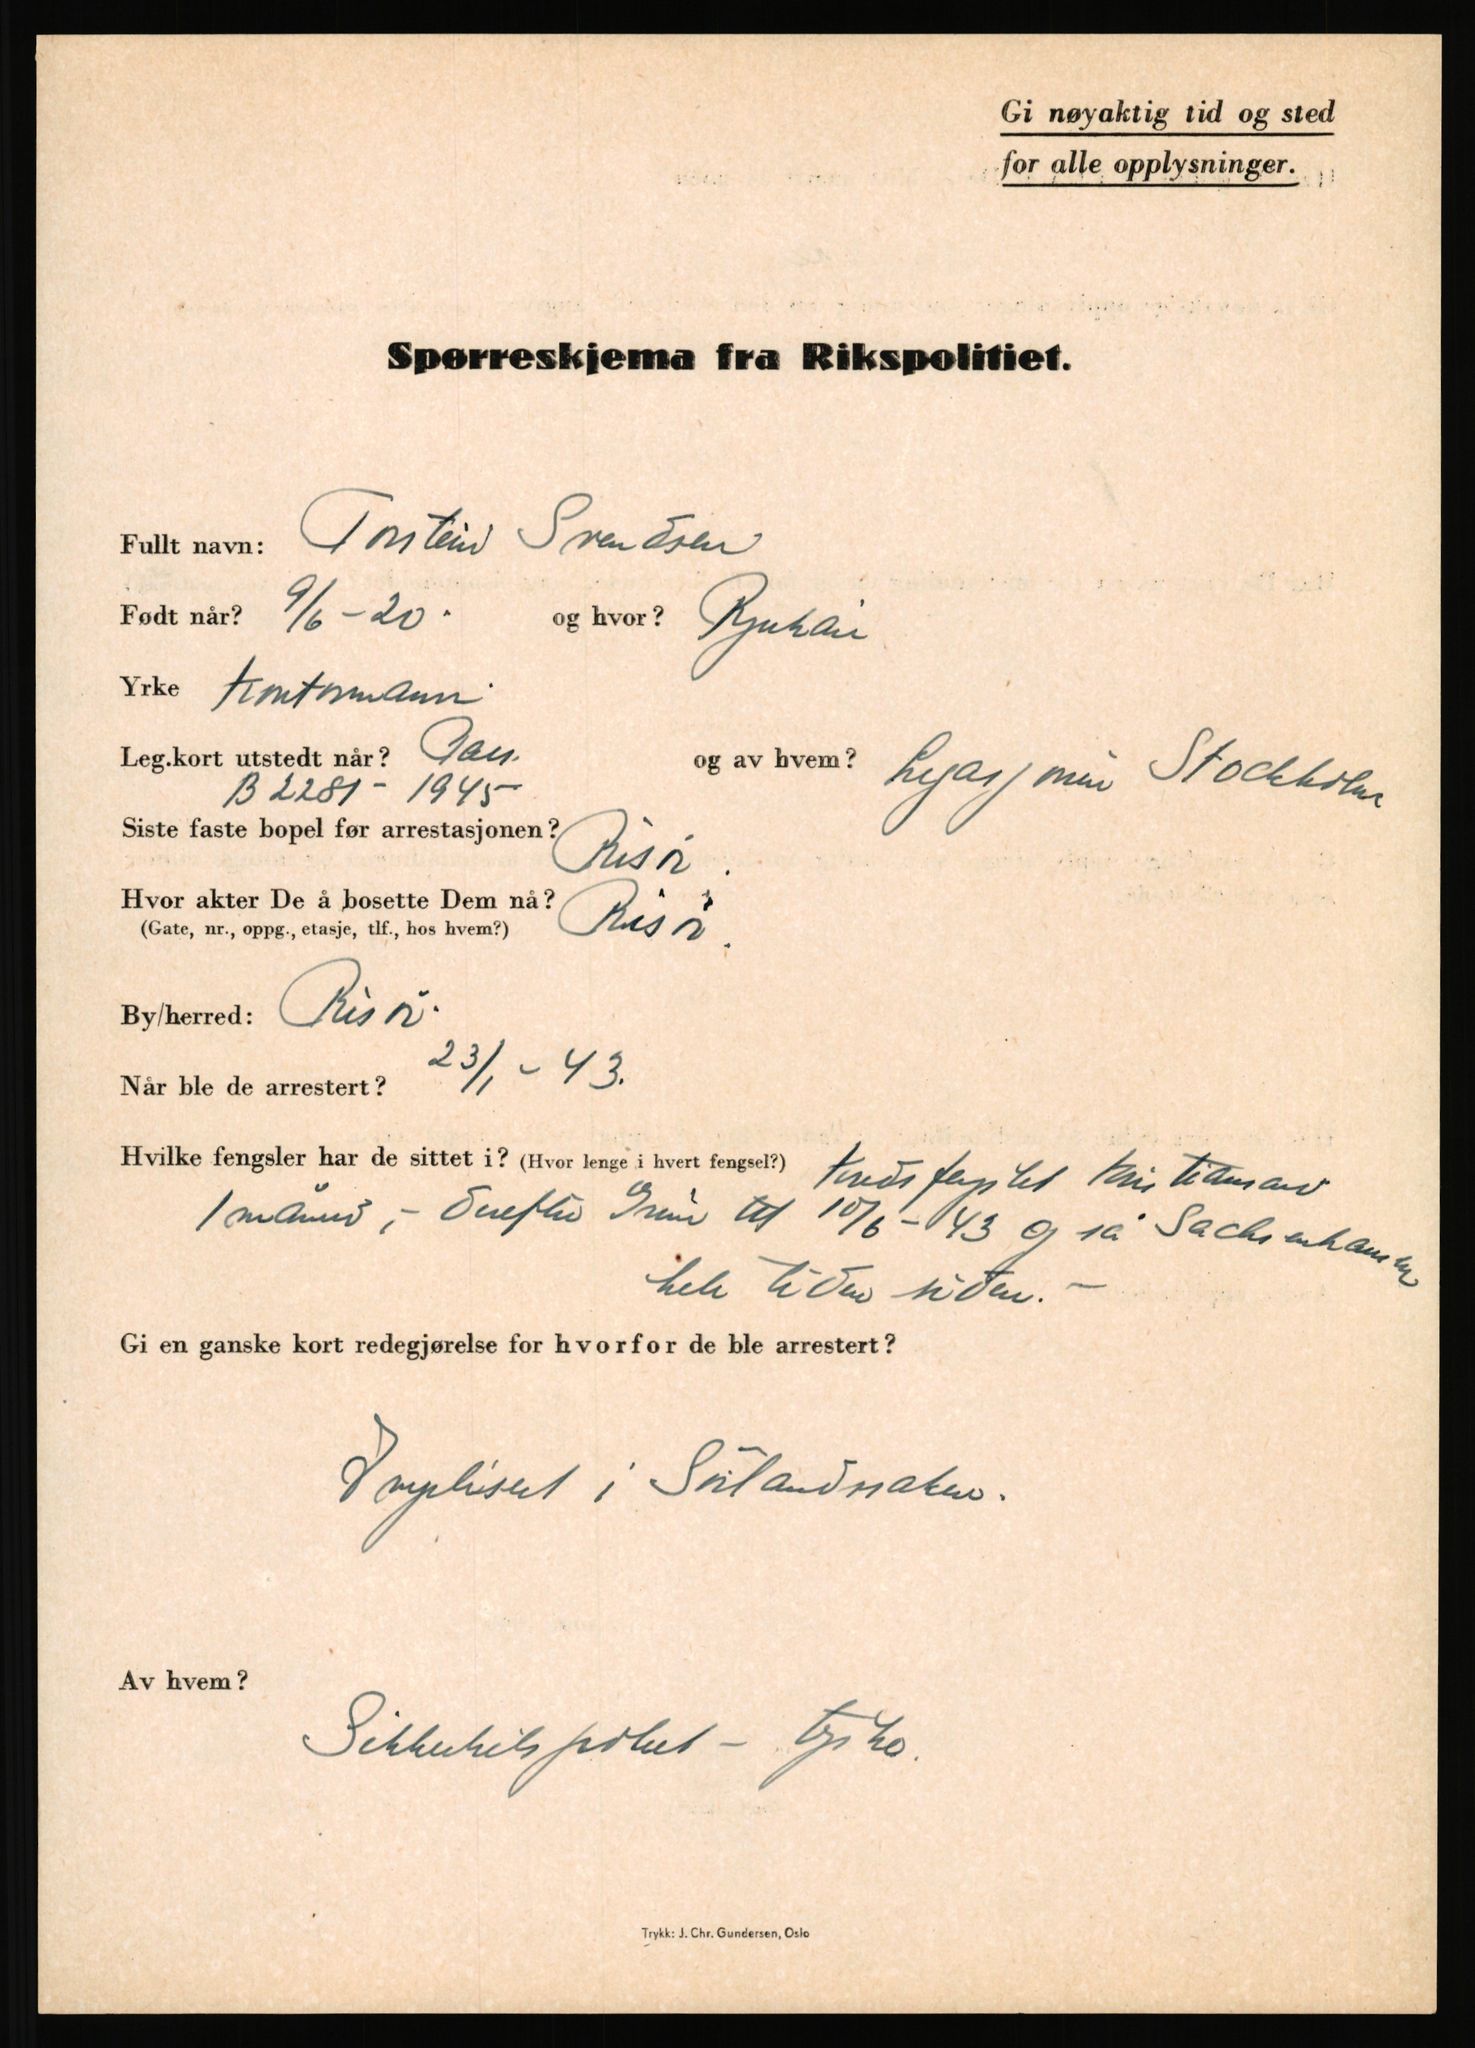 Gi nøyaktig tid og sted
for alle opplysninger.
Spørreskjema fra Rikspolitiet.
Fullt navn: Torstein Svendsen
Født når? 9/6-20. og hvor? Rjukan
Yrke Kontormann.
Leg.kort utstedt når? Pass. og av hvem? Legasjonen Stockholm
B 2281 - 1945
Siste faste bopel før arrestasjonen? Risör.
Hvor akter De å bosette Dem nå? Risör.
(Gate, nr., oppg., etasje, tlf., hos hvem?)
By/herred: Risör.
Når ble de arrestert? 23/1-43.
Hvilke fengsler har de sittet i? (Hvor lenge i hvert fengsel?) Kredsfengslet Kristiansand
1 måned, - derefter Grini til 10/6-43 og så Sachsenhausen
hele tiden siden. -
Gi en ganske kort redegjørelse for hvorfor de ble arrestert?
Impliseret i Sörlandssaken.
Av hvem?
Sikkerhetspolitiet - tyske.
Trykk: J. Chr. Gundersen, Oslo